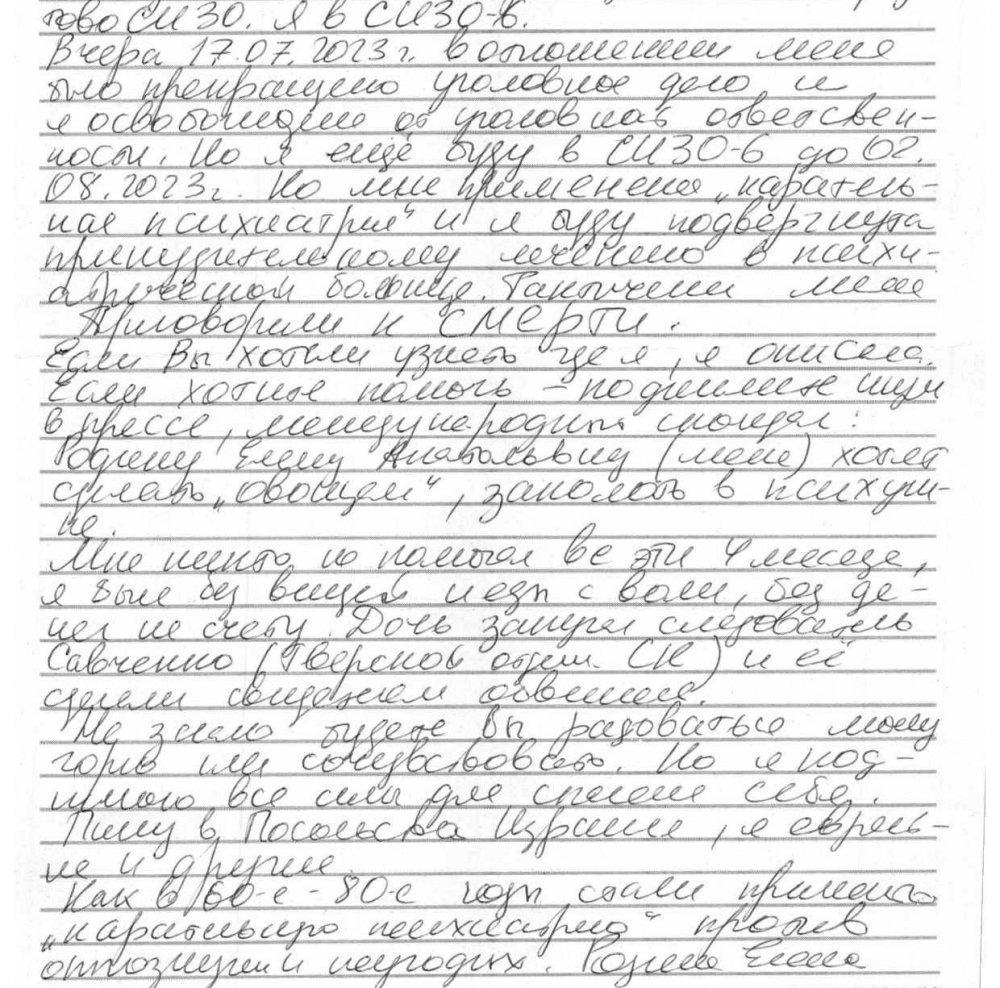 гово СИЗО. Я в СИЗО-6.
Вчера 17.07.2023г. в отношении меня
было прекращено уголовное дело и
я освобождена от уголовной ответствен-
ности. Но я ещё буду в СИЗО-6 до 02.
08.2023г. Ко мне применена „каратель-
ная психиатрия" и я буду подвергнута
принудительному лечению в психи-
атрической больнице. Фактически меня
приговорили к СМЕРТИ.
Если Вы хотели узнать где я, я описала.
Если хотите помочь – поднимите шум
в прессе, международный скандал:
Родину Елену Анатольевну (меня) хотят
сделать „овощем", заколоть в психуш-
ке.
Мне никто не помогал все эти 4 месяца,
я была без вещей и еды с воли, без де-
нег на счету. Дочь запугал следователь
Савченко (Тверской отдел СК) и её
сделали свидетелем обвинения.
Не знаю будете Вы радоваться моему
горю или сочувствовать. Но я под-
нимаю все силы для спасения себя.
Пишу в Посольства Израиля, я еврей-
ка и другие.
Как в 60-е - 80-е годы стали применять
„карательную психиатрию" против
оппозиции и неугодных. Родина Елена